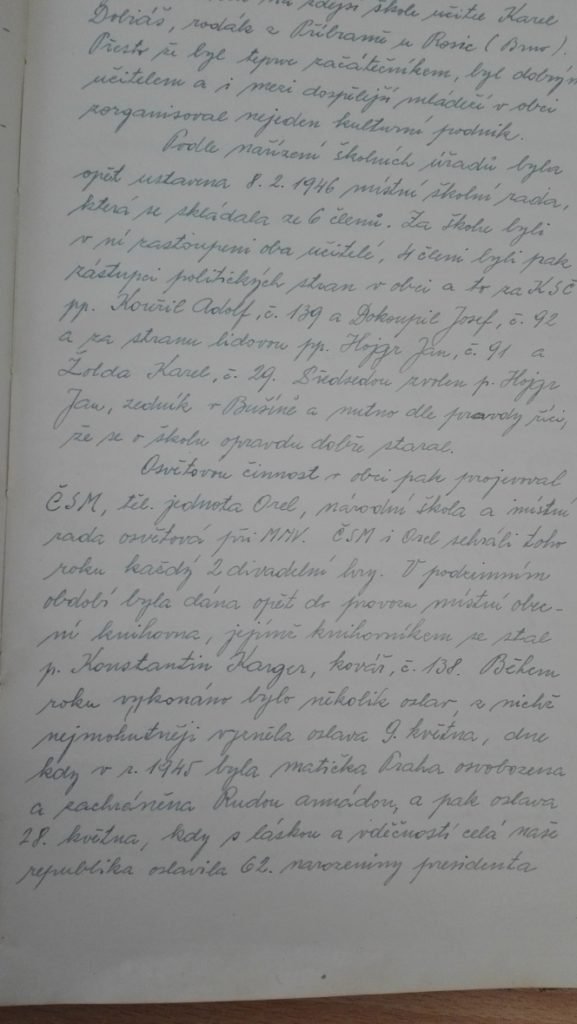 na zdejší škole učitel Karel
Dobiáš, rodák z Příbramě u Rosic (Brno).
Přesto že byl teprve začátečníkem, byl dobrým
učitelem a i mezi dospělejší mládeží v obci
zorganisoval nejeden kulturní podnik.
Podle nařízení školních úřadů byla
opět ustavena 8. 2. 1946 místní školní rada,
která se skládala ze 6 členů. Za školu byli
v ní zastoupeni oba učitelé, 4 členi byli pak
zástupci politických stran v obci a to za KSČ
pp. Kouřil Adolf, č. 139 a Dokoupil Josef, č. 92
a za stranu lidovou pp. Hojgr Jan, č. 91 a
Žolda Karel, č. 29. Předsedou zvolen p. Hojgr
Jan, zedník v Bušíně a nutno dle pravdy říci,
že se o školu opravdu dobře staral.
Osvětovou činnost v obci pak projevoval
ČSM, těl. jednota Orel, národní škola a místní
rada osvětová při MNV. ČSM i Orel sehráli toho
roku každý 2 divadelní hry. V podzimním
období byla dána opět do provozu místní obec-
ní knihovna, jejímž knihovníkem se stal
p. Konstantin Karger, kovář, č. 138. Během
roku vykonáno bylo několik oslav, z nichž
nejmohutněji vyzněla oslava 9. května, dne
kdy v r. 1945 byla matička Praha osvobozena
a zachráněna Rudou armádou, a pak oslava
28. května, kdy s láskou a vděčností celá naše
republika oslavila 62. narozeniny presidenta